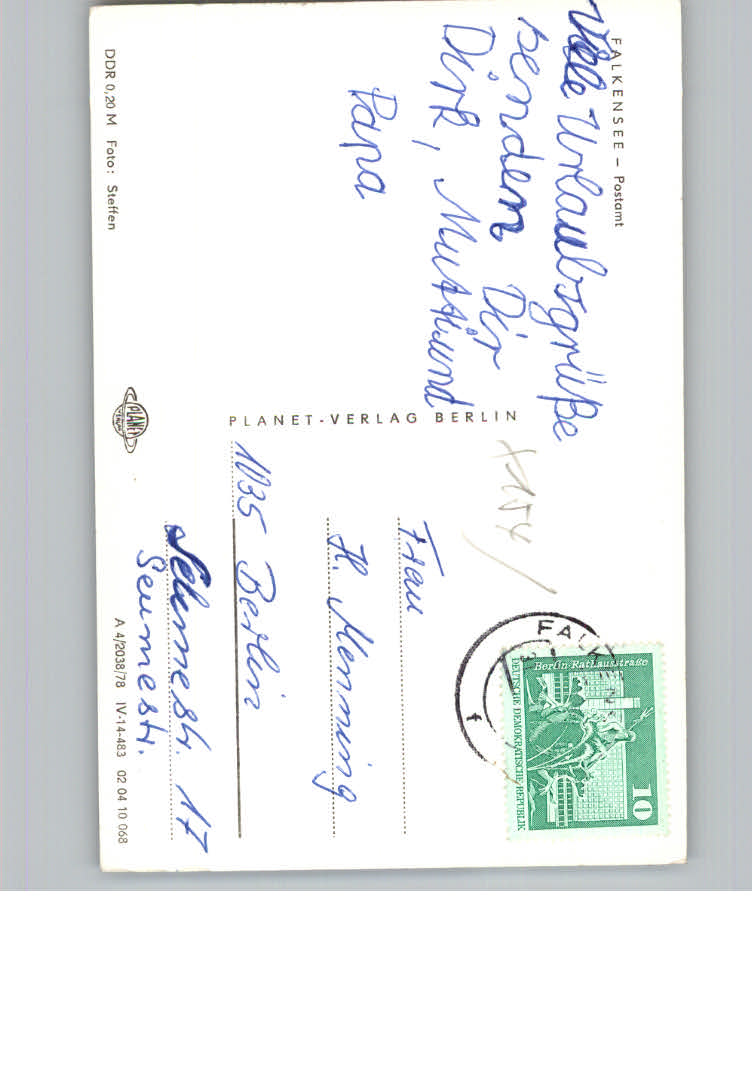 FALKENSEE – Postamt
Viele Urlaubsgrüße
senden Dir
Dirk, Mutti und
Papa
DDR 0,20 M Foto: Steffen
PLANET-VERLAG BERLIN
PLANET
VERLAG
Frau
H. Menning
1035 Berlin
Seumestr. 17
Seumestr.
A 4/2038/78 IV-14-483 02 04 10 068
FALKENS
Berlin-Rathausstraße
10
DEUTSCHE DEMOKRATISCHE REPUBLIK
f